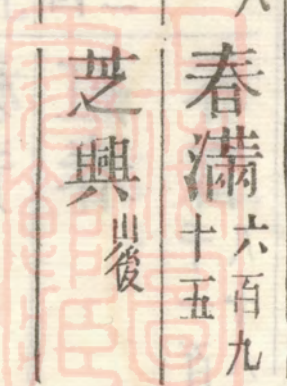 春滿六百九十五
芝興出後